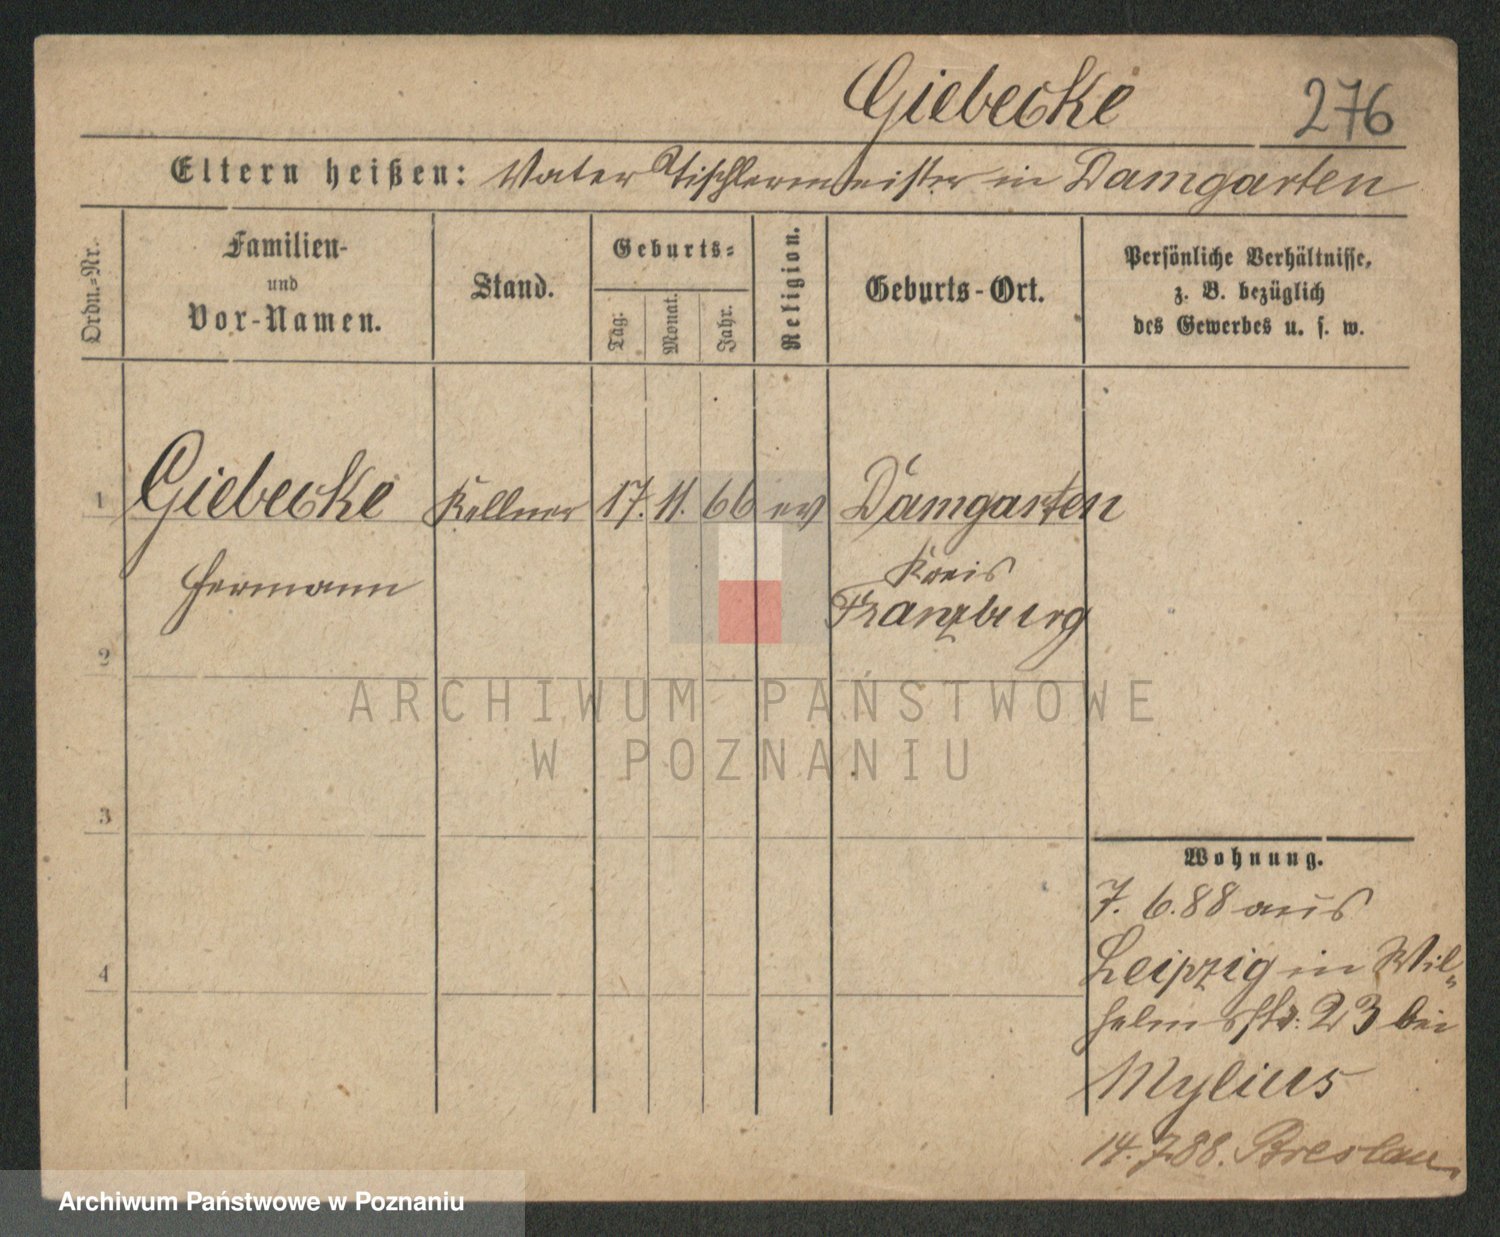 Giebecke 276
Eltern heißen: Vater Tischlermeister in Damgarten
Ordn.-Nr.
Familien-
und
Vor-Namen.
Stand.
Geburts-
Tag.
Monat.
Jahr.
Religion.
Geburts-Ort.
Persönliche Verhältnisse,
z. B. bezüglich
des Gewerbes u. s. w.
1 Giebecke Kellner 17. 11. 66 ev Damgarten
Hermann
Kreis
Franzburg
2
ARCHIWUM PAŃSTWOWE
W POZNANIU
3
Wohnung.
7. 6. 88 aus
Leipzig in Wil-
4
helmsstr. 23 bei
Mylius
14. 7 88. Breslau.
Archiwum Państwowe w Poznaniu